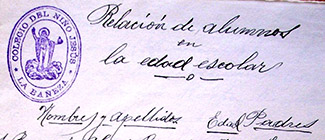 COLEGIO DEL NIÑO JESÚS
LA BAÑEZA
Relación de alumnos
en
la edad escolar
Nombres y apellidos Edad Padres